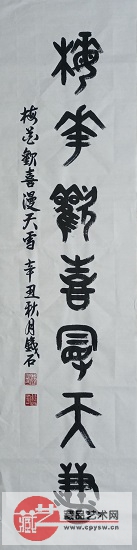 梅花歡喜漫天雪
梅花歡喜漫天雪 辛丑秋月 石
藏艺
藏品艺术网
www.cpysw.cn